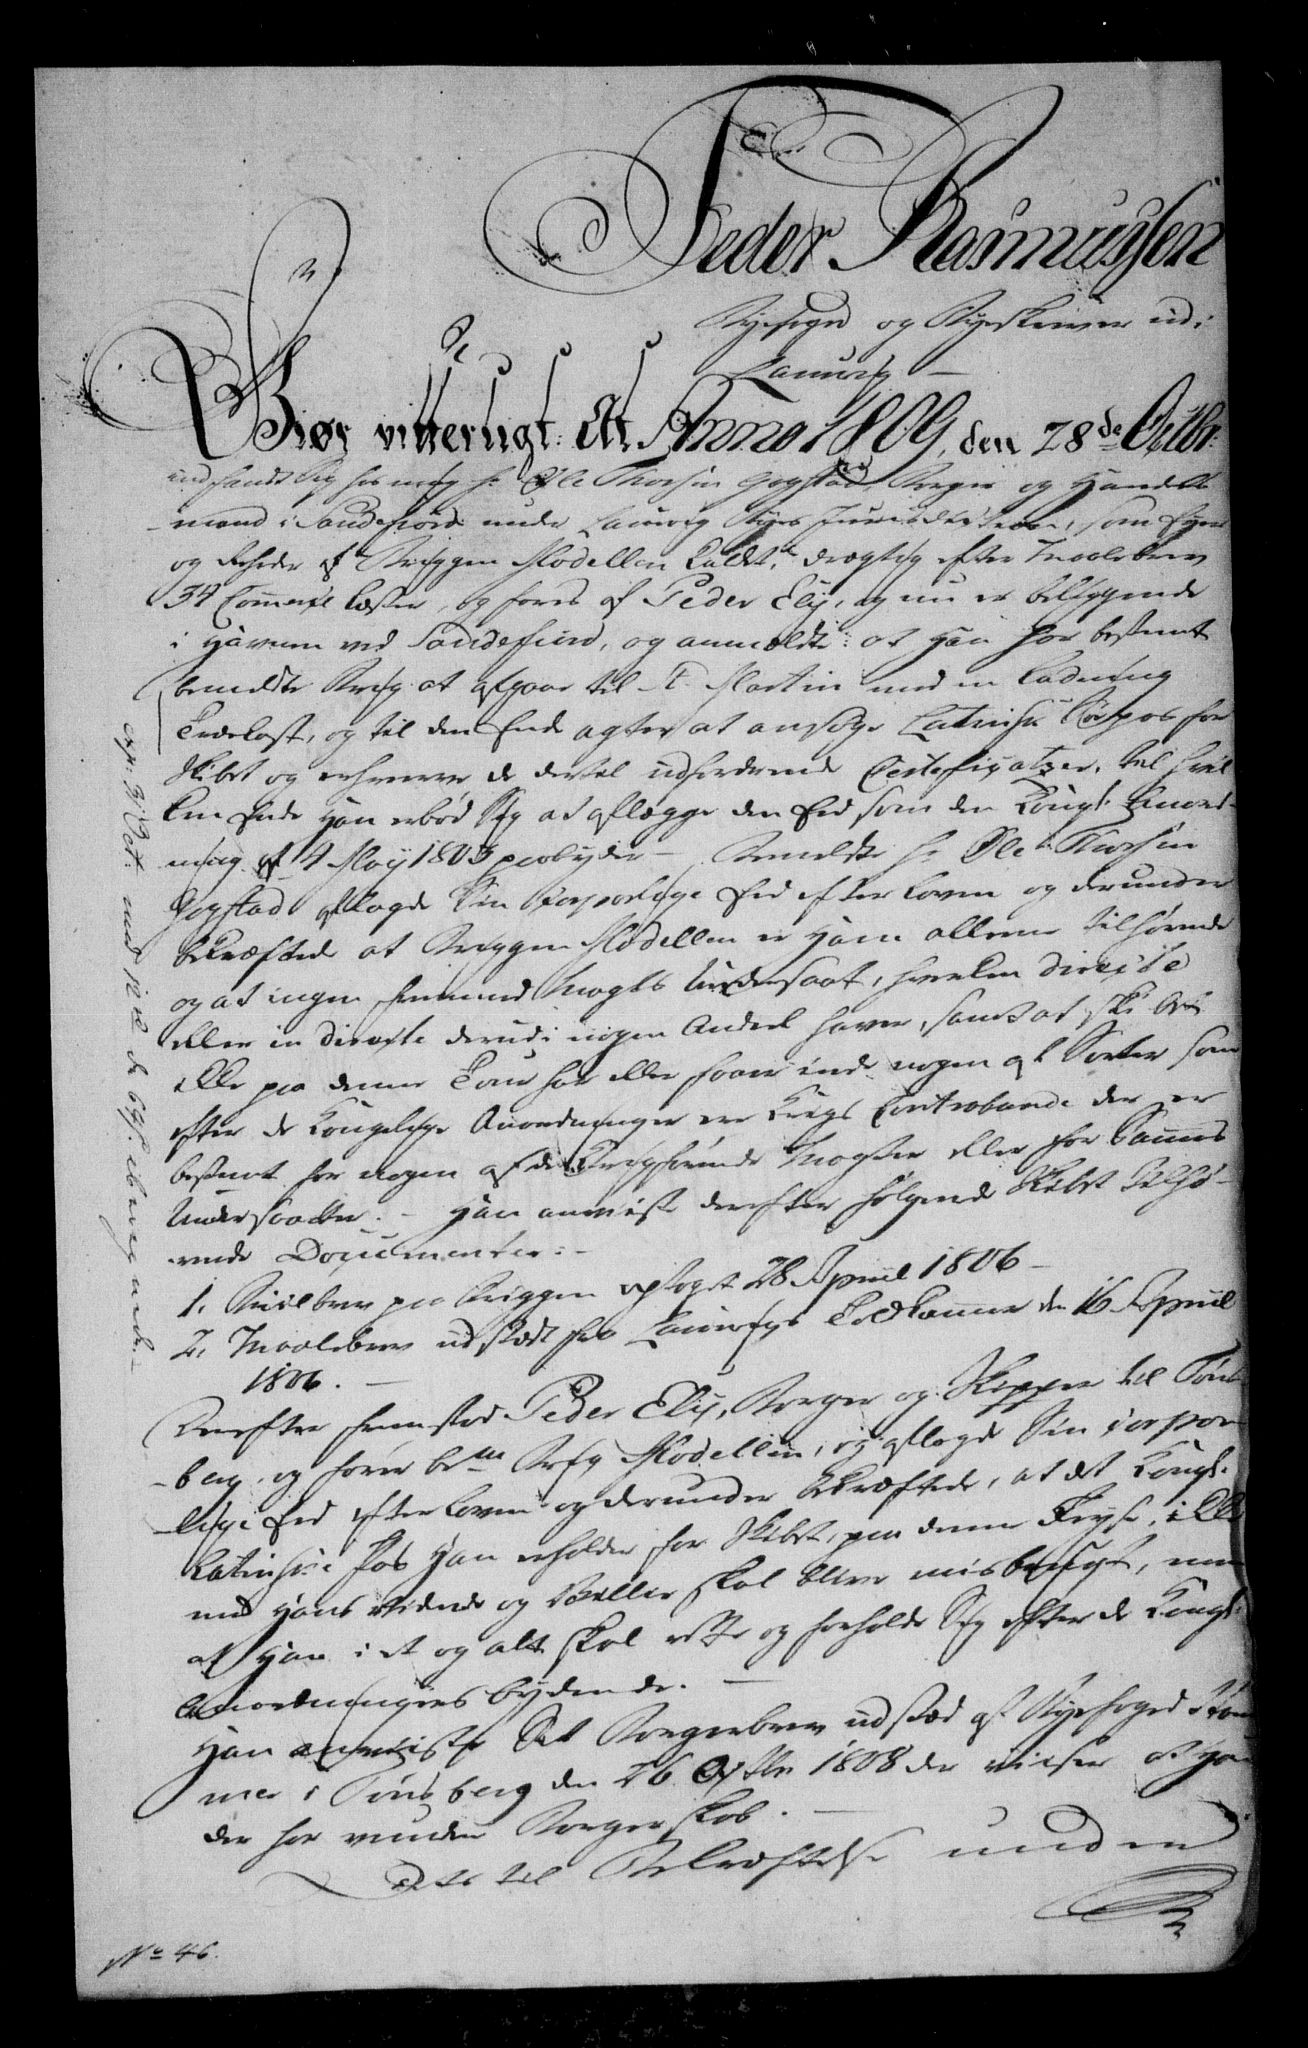 Peder Rasmussen
Byefoged og Byeskriver udi
Laurvig
Giør vitterligt: At Anno 1809, den 28de Octbr:
indfandt sig hos mig Hr Ole Thorsen Gogstad, Borger og Handels
mand i Sandefiord under Laurvig Byes Jurisdiction, som Eyer
og Rehder af Briggen Modellen kaldt, drægtig efter Maalebrev
34 Commerse Læster, og føres af Peder Elij, og nu er beliggende
i Havnen ved Sandefiord, og anmeldte: at han har bestemt
bemeldte Brig at afgaae til St Martin med en Ladning
Trælast, og til den Ende agter at ansøge Latinsk Søepas for
Skibet og erhverve de dertil udfordrende Certeficatzer, til hvil
ken Ende han erbød sig at aflægge den Eed som den Kongl: Anord-
ning af 4 May 1803 paabyder — Bemeldte Hr Ole Thorsen
Gogstad aflagde sin corporlige Eed efter Loven og derunder
bekræftede at Briggen Modellen er ham alleene tilhørende
og at ingen fremmed Magts Undersaat, hverken directe
eller in directe derudi nogen Andeel haver, samt at Skibet
ikke paa denne Tour har eller faaer inde nogen af de Sorter som
efter de Kongelige Anordninger ere Krigs Contrabande der er
bestemt for nogen af de Krigførende Magter eller for Sammes
Undersaatter. — Han anviiste derefter følgende Skibet tilhø-
rende Documenter: -
1. Bilbrev paa Briggen optaget 28 Apriil 1806 —
2. Maalebrev udstædt fra Laurvigs Toldkammer den 16 Apriil
1806. —
Derefter fremstod Peder Elij, Borger og Skipper til Tøns-
-berg, og fører bemte Brig Modellen, og aflagde sin corpor-
-lige Eed efter Loven og derunder bekræftede, at det Kongl:
Latinske Pas han erholder for Skibet, paa denne Reyse, ikke
med hans vidende og Villie skal blive misbrugt, men
at han i et og alt skal rette og forholde sig efter de Kongl:
Anordningers bydende. —
Han anviiste sit Borgerbrev udstæd af Byefoged
i Tønsberg den 26 1808 der viiser at han
der har vundet Borgerskab. —
Dette til Bekræftelse under
No 46.